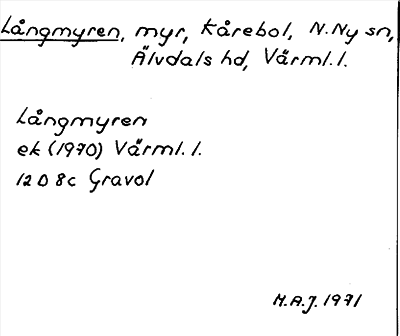 Långmyren, myr, Kårebol, N.Ny sn,
Älvdals hd, Värml. l.
Långmyren
ek (1970) Värml. l.
12 D 8c Gravol
M.A.J. 1971